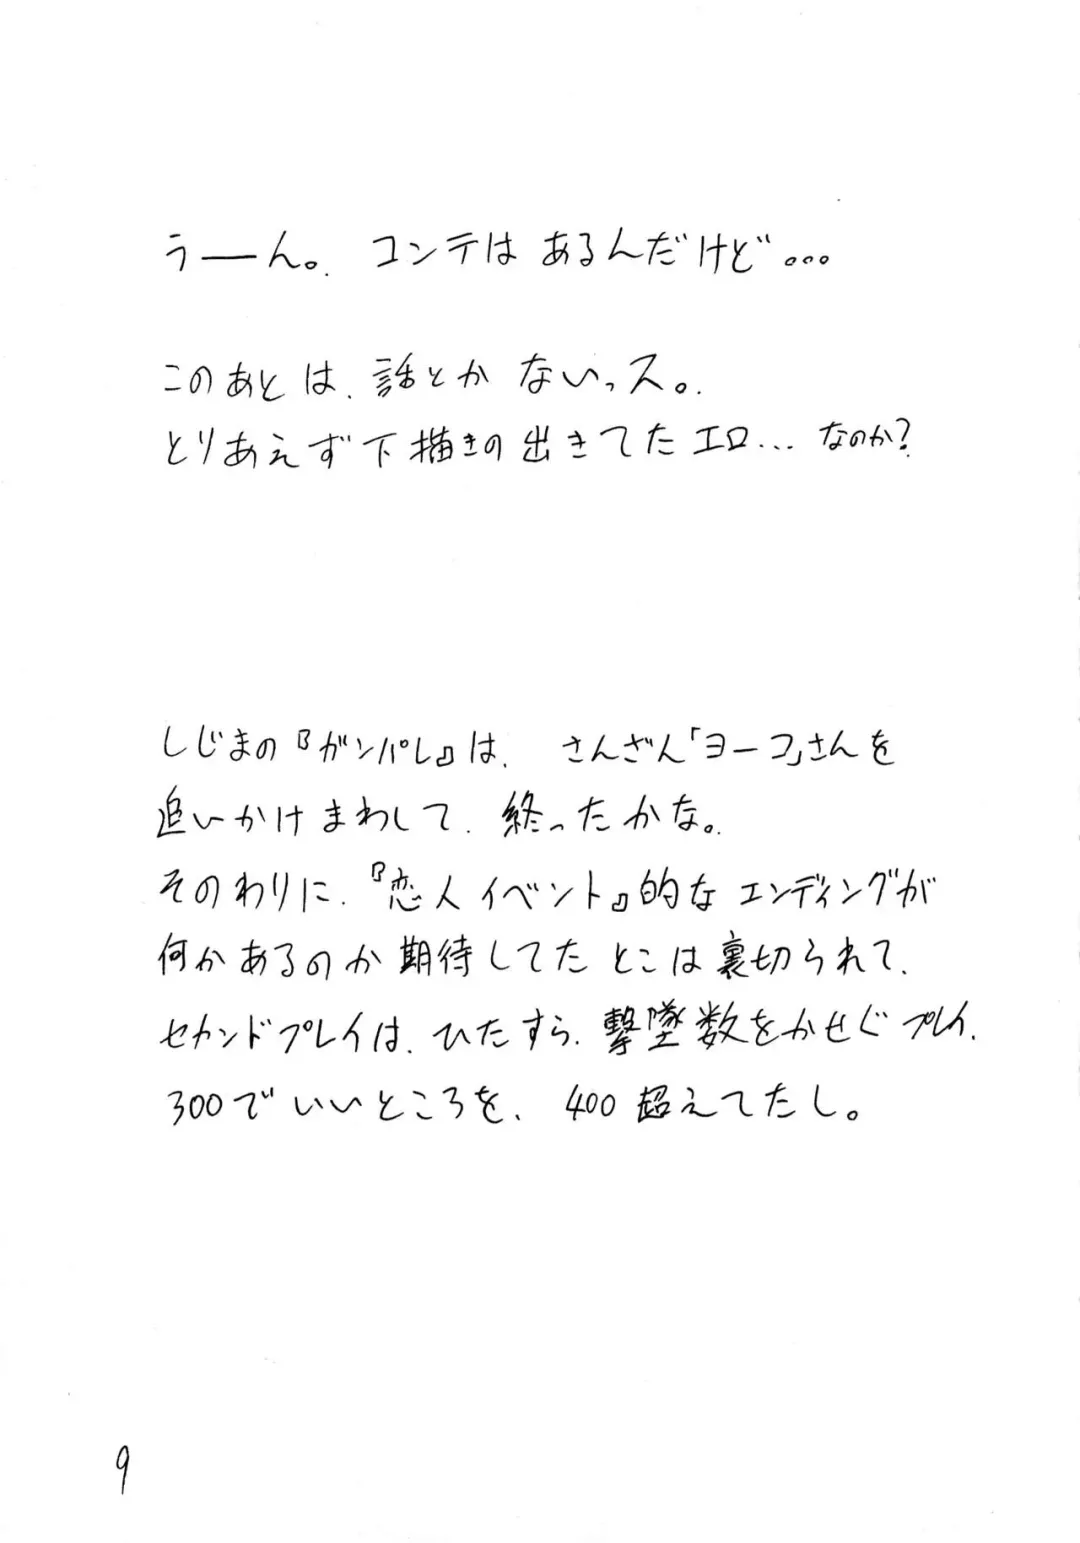 うーん。. コンテは あるんだけど...
このあとは、話とか ないっス。.
とりあえず下描きの出きてたエロ... なのか?
しじまの『ガンパレ』は、さんざん「ヨーコ」さんを
追いかけまわして、終ったかな。.
そのわりに、『恋人イベント』的なエンディングが
何かあるのか期待してたとこは裏切られて、
セカンドプレイは、ひたすら、撃墜数をかせぐプレイ、
300でいいところを、400超えてたし。
9